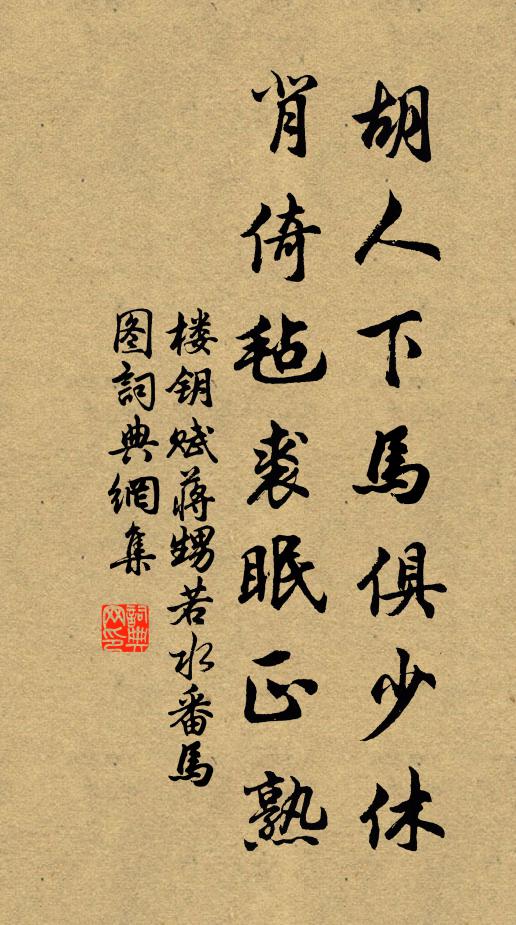 胡人下馬俱少休
背倚毡裘眠正熟
楼钥赋蒋甥若水番馬
图詞典網集
詞典
网印